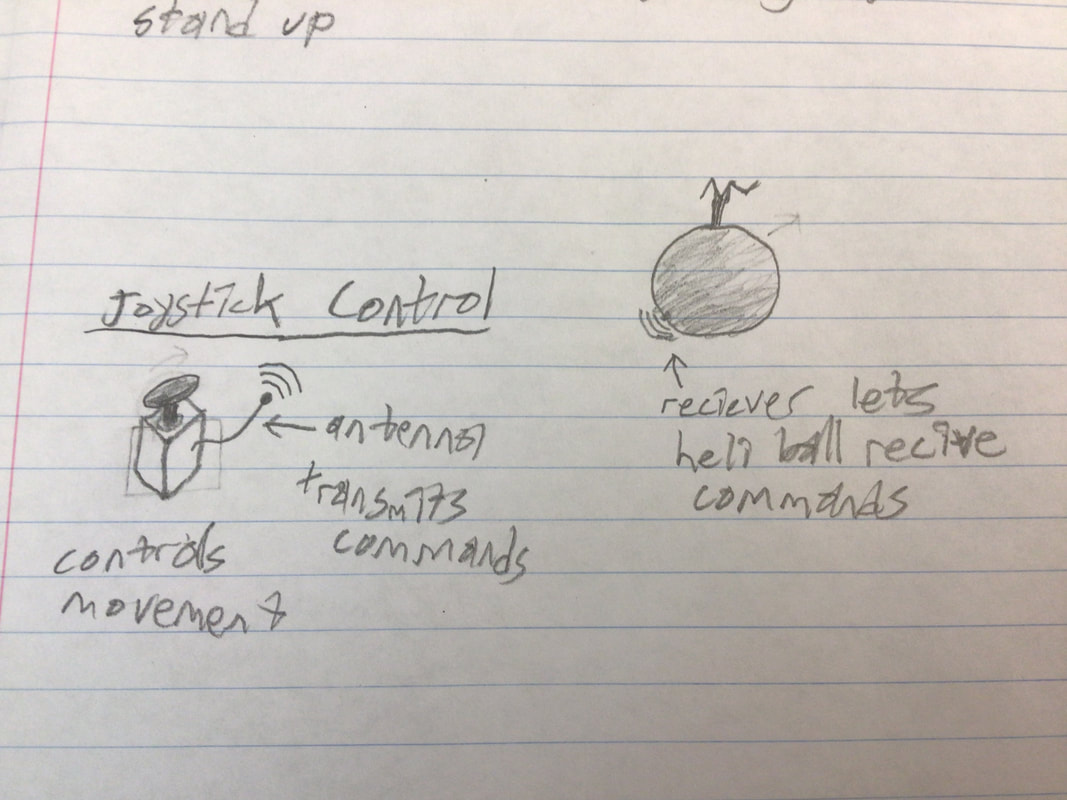 stand up
Joystick Control
antenna
transmits
commands
controls
movement
reciever lets
heli ball recive
commands